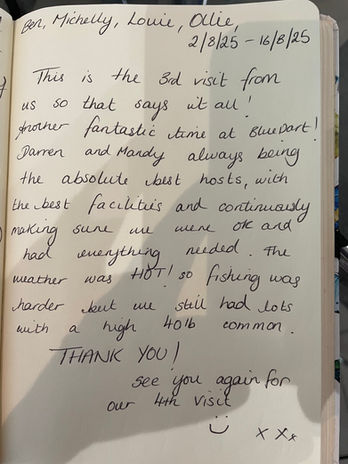 Ben, Michelly, Louie, Ollie,
2/8/25 - 16/8/25
This is the 3rd visit from
us so that says it all!
Another fantastic time at BlueDart!
Darren and Mandy always being
the absolute best hosts, with
the best facilities and continuously
making sure we were OK and
had everything needed. The
weather was HOT! so fishing was
harder but we still had lots
with a high 40lb common.
THANK YOU!
see you again for
our 4th visit
x x x